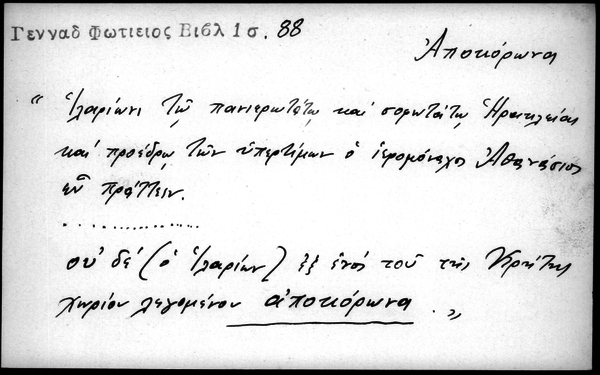 Γενναδ Φωτιειος Βιβλ 1 σ. 88
Ἀποκόρωνα
“ Ἱλαρίωνι τῷ πανιερωτάτῳ καί σοφωτάτῳ Ἡρακλείας
καί προέδρῳ τῶν ὑπερτίμων ὁ ἱερομόναχος Ἀθανάσιος
εὖ πράττειν.
..................
σύ δέ (ὁ Ἱλαρίων) ἐξ ἑνός τοῦ τῆς Κρήτης
χωρίου λεγομένου ἀποκόρωνα . „